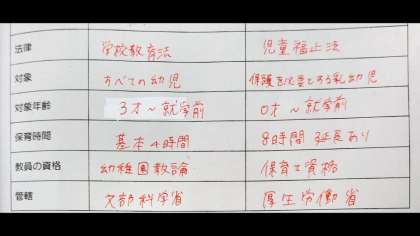 法律 学校教育法 児童福止法
対象 すべての幼児 保護を必要とする乳幼児
対象年齢 3才~就学前 0才~就学前
保育時間 基本4時間 8時間 延長あり
教員の資格 幼稚園教諭 保育士資格
管轄 文部科学省 厚生労働省